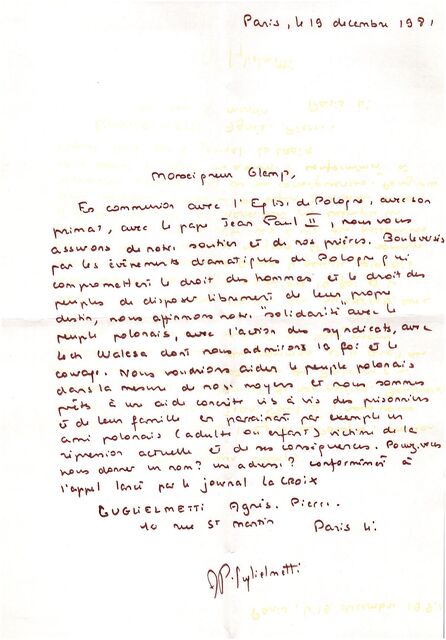 Paris, le 19 décembre 1981
Monseigneur Glemp,
En communion avec l'Eglise de Pologne, avec son
primat, avec le pape Jean Paul II, nous vous
assurons de notre soutien et de nos prières. Bouleversés
par les évènements dramatiques de Pologne qui
compromettent le droit des hommes et le droit des
peuples de disposer librement de leur propre
destin, nous affirmons notre "solidarité" avec le
peuple polonais, avec l'action des syndicats, avec
Lech Walesa dont nous admirons la foi et le
courage. Nous voudrions aider le peuple polonais
dans la mesure de nos moyens et nous sommes
prêts à une aide concrète vis à vis des prisonniers
et de leur famille en parrainant par exemple un
ami polonais (adulte ou enfant) victime de la
répression actuelle et de ses conséquences. Pouvez-vous
nous donner un nom? une adresse? conformément à
l'appel lancé par le journal La Croix
GUGLIELMETTI Agnès. Pierre.
10 rue St Martin Paris 4è
AP. Guglielmetti